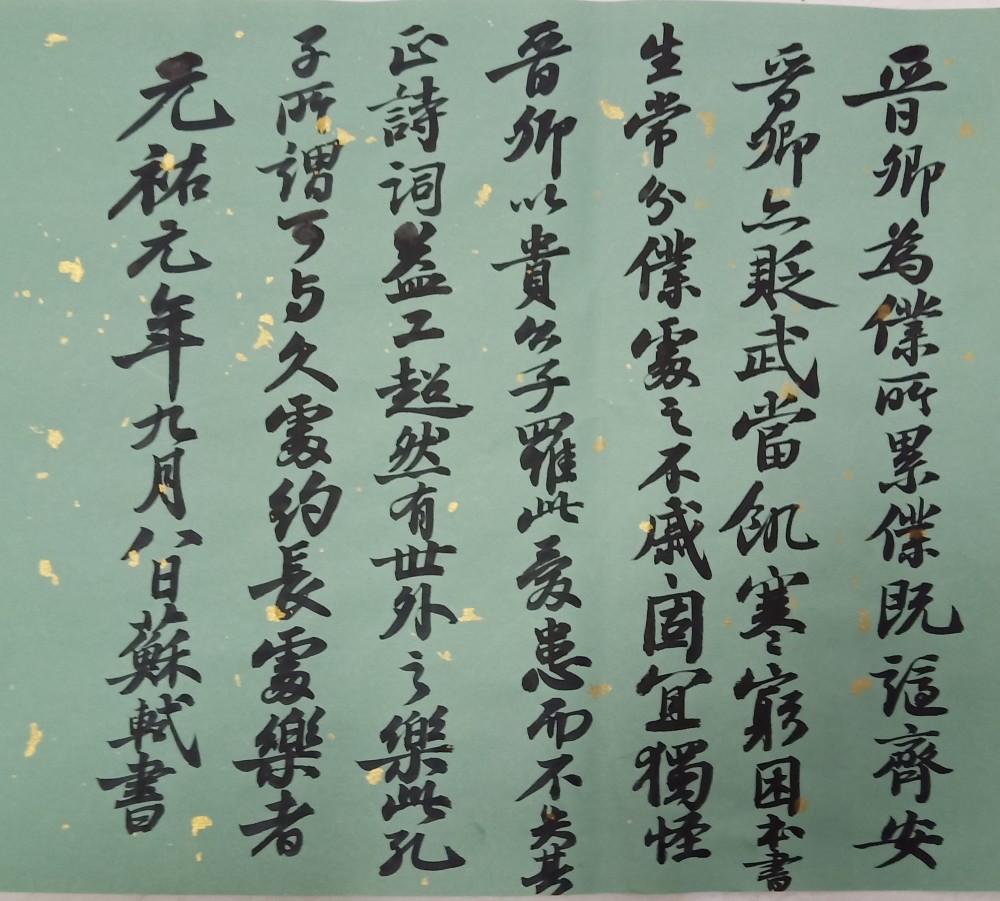 晉卿為僕所累僕既謫齊安
晉卿亦貶武當飢寒窮困本書
生常分僕處之不戚固宜獨怪
晉卿以貴公子罹此憂患而不失其
正詩詞益工超然有世外之樂此孔
子所謂可与久處約長處樂者
元祐元年九月八日蘇軾書